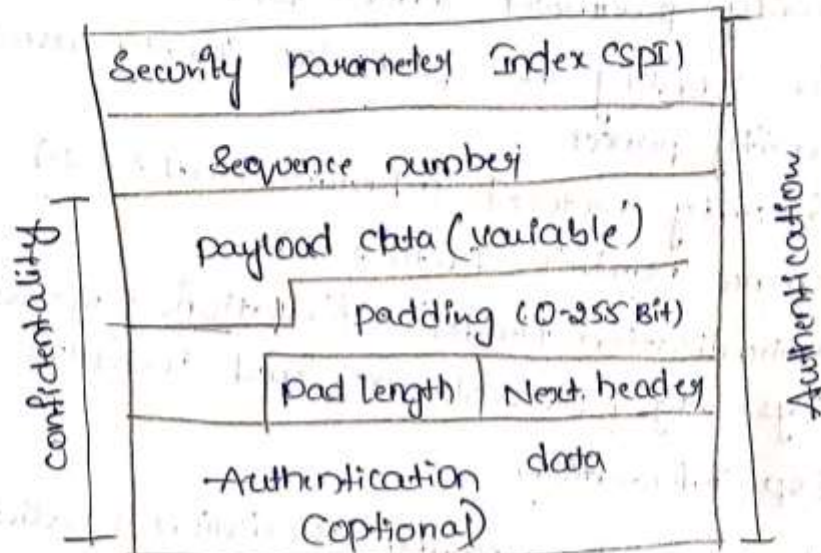 Security parameter Index (SPI)
Sequence number
payload data (variable)
padding (0-255 Bit)
Pad length Next header
Authentication data
(optional)
confidentality
Authentication